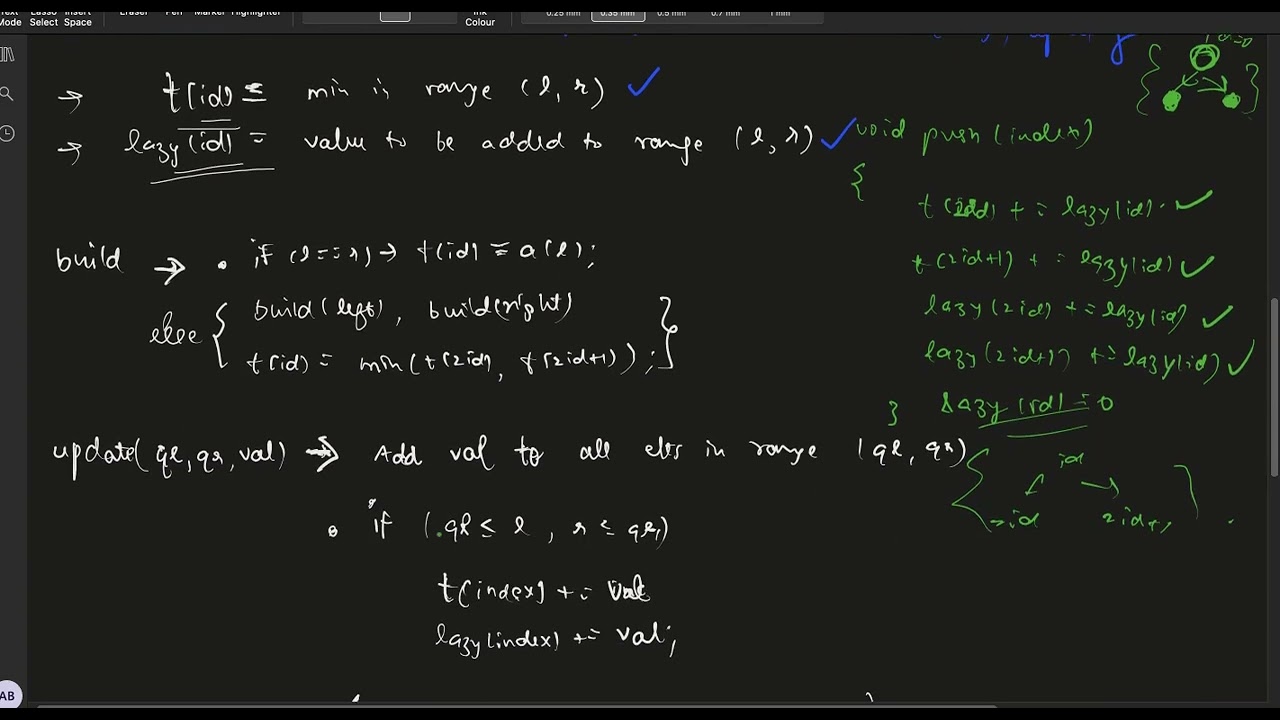 Text Lasso Insert Eraser Pen Marker Highlighter Ink 0.25 mm 0.35 mm 0.5 mm 0.7 mm 1 mm
Mode Select Space Colour
→ t[id] = min in range (l, r) ✓
→ lazy[id] = value to be added to range (l, r) ✓
void push(index)
{
t[2id] += lazy[id]. ✓
t[2id+1] += lazy[id] ✓
lazy[2id] += lazy[id] ✓
lazy[2id+1] += lazy[id] ✓
lazy[id] = 0
}
build → • if (l==r) → t[id] = a[l];
else { build(left), build(right)
t[id] = min(t[2id], t[2id+1]); }
update(ql, qr, val) → Add val to all elts in range (ql, qr)
id
2id 2id+1
• if (ql ≤ l, r ≤ qr)
t[index] += val
lazy[index] += val;
AB